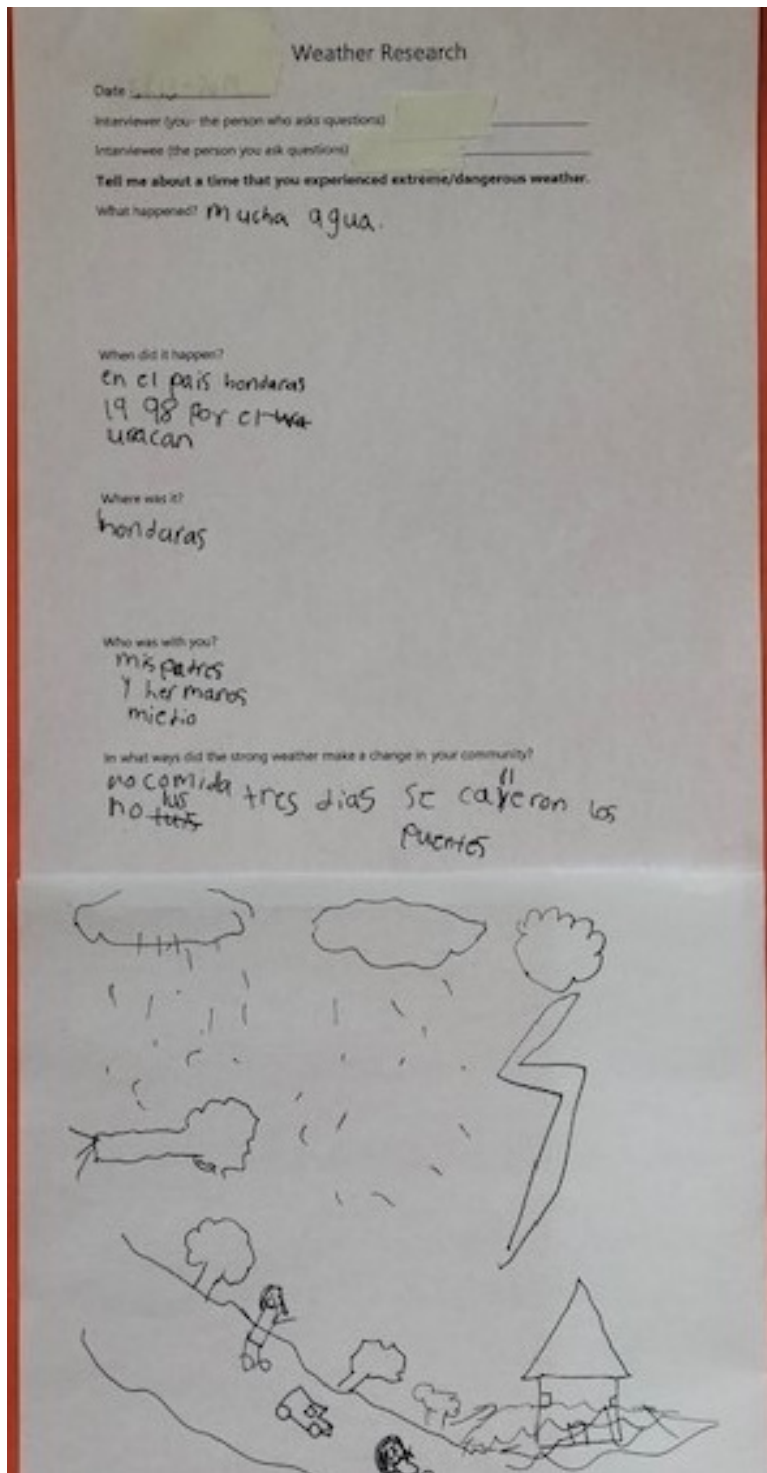 Weather Research
Date
Interviewer (you- the person who asks questions)
Interviewee (the person you ask questions)
Tell me about a time that you experienced extreme/dangerous weather.
What happened? mucha agua.
When did it happen?
en el pais honduras
19 98 por el
uracan
Where was it?
honduras
Who was with you?
mis patres
y hermanos
miedio
In what ways did the strong weather make a change in your community?
no comida tres dias se calleron los
no lus
puentes